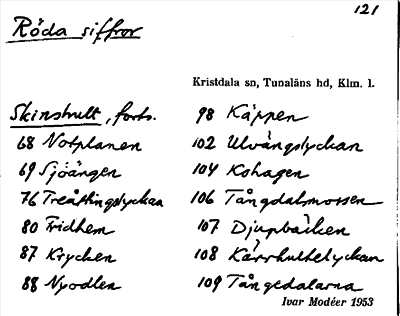 121
Röda siffror
Kristdala sn, Tunaläns hd, Klm. l.
Skinshult, forts.
68 Notplanen
69 Sjöängen
76 Treåttingslyckan
80 Fridhem
87 Krychen
88 Nyodlen
98 Käppen
102 Ulvängslyckan
104 Kohagen
106 Tångdalsmossen
107 Djupbäcken
108 Kärrhultelyckan
109 Tångedalarna
Ivar Modéer 1953